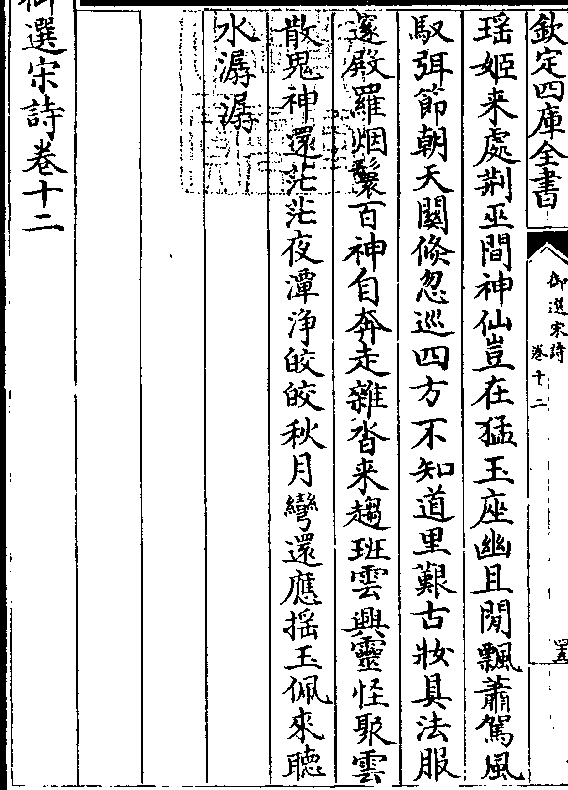 欽定四庫全書
御選宋詩
卷十二
瑶姬来處荆巫間神仙豈在猛玉座幽且閒飄蕭駕風
馭弭節朝天關倐忽巡四方不知道里艱古妝具法服
邃殿羅烟鬟百神自奔走雜沓来趨班雲興靈怪聚雲
散鬼神還茫茫夜潭浄皎皎秋月彎還應揺玉佩來聽
水潺潺
御選宋詩卷十二